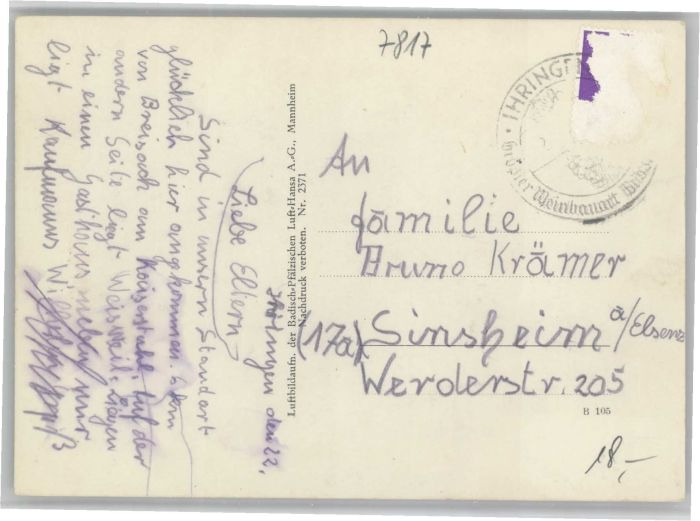 7817
IHRINGEN
An
Familie
Bruno Krämer
(17a) Sinsheim a/Elsenz
Werderstr. 205
B 105
18,-
Luftbildaufn. der Badisch-Pfälzischen Luft-Hansa A.-G., Mannheim
Nachdruck verboten. Nr. 2371
Ihringen den 22.
Liebe Eltern
Sind in unsern Standort
glücklich hier angekommen.
von Breisach am Kaiserstuhl. Auf der
andern Seite liegt
in einen Gasthaus neben mir
ligt Kaufmanns Willi